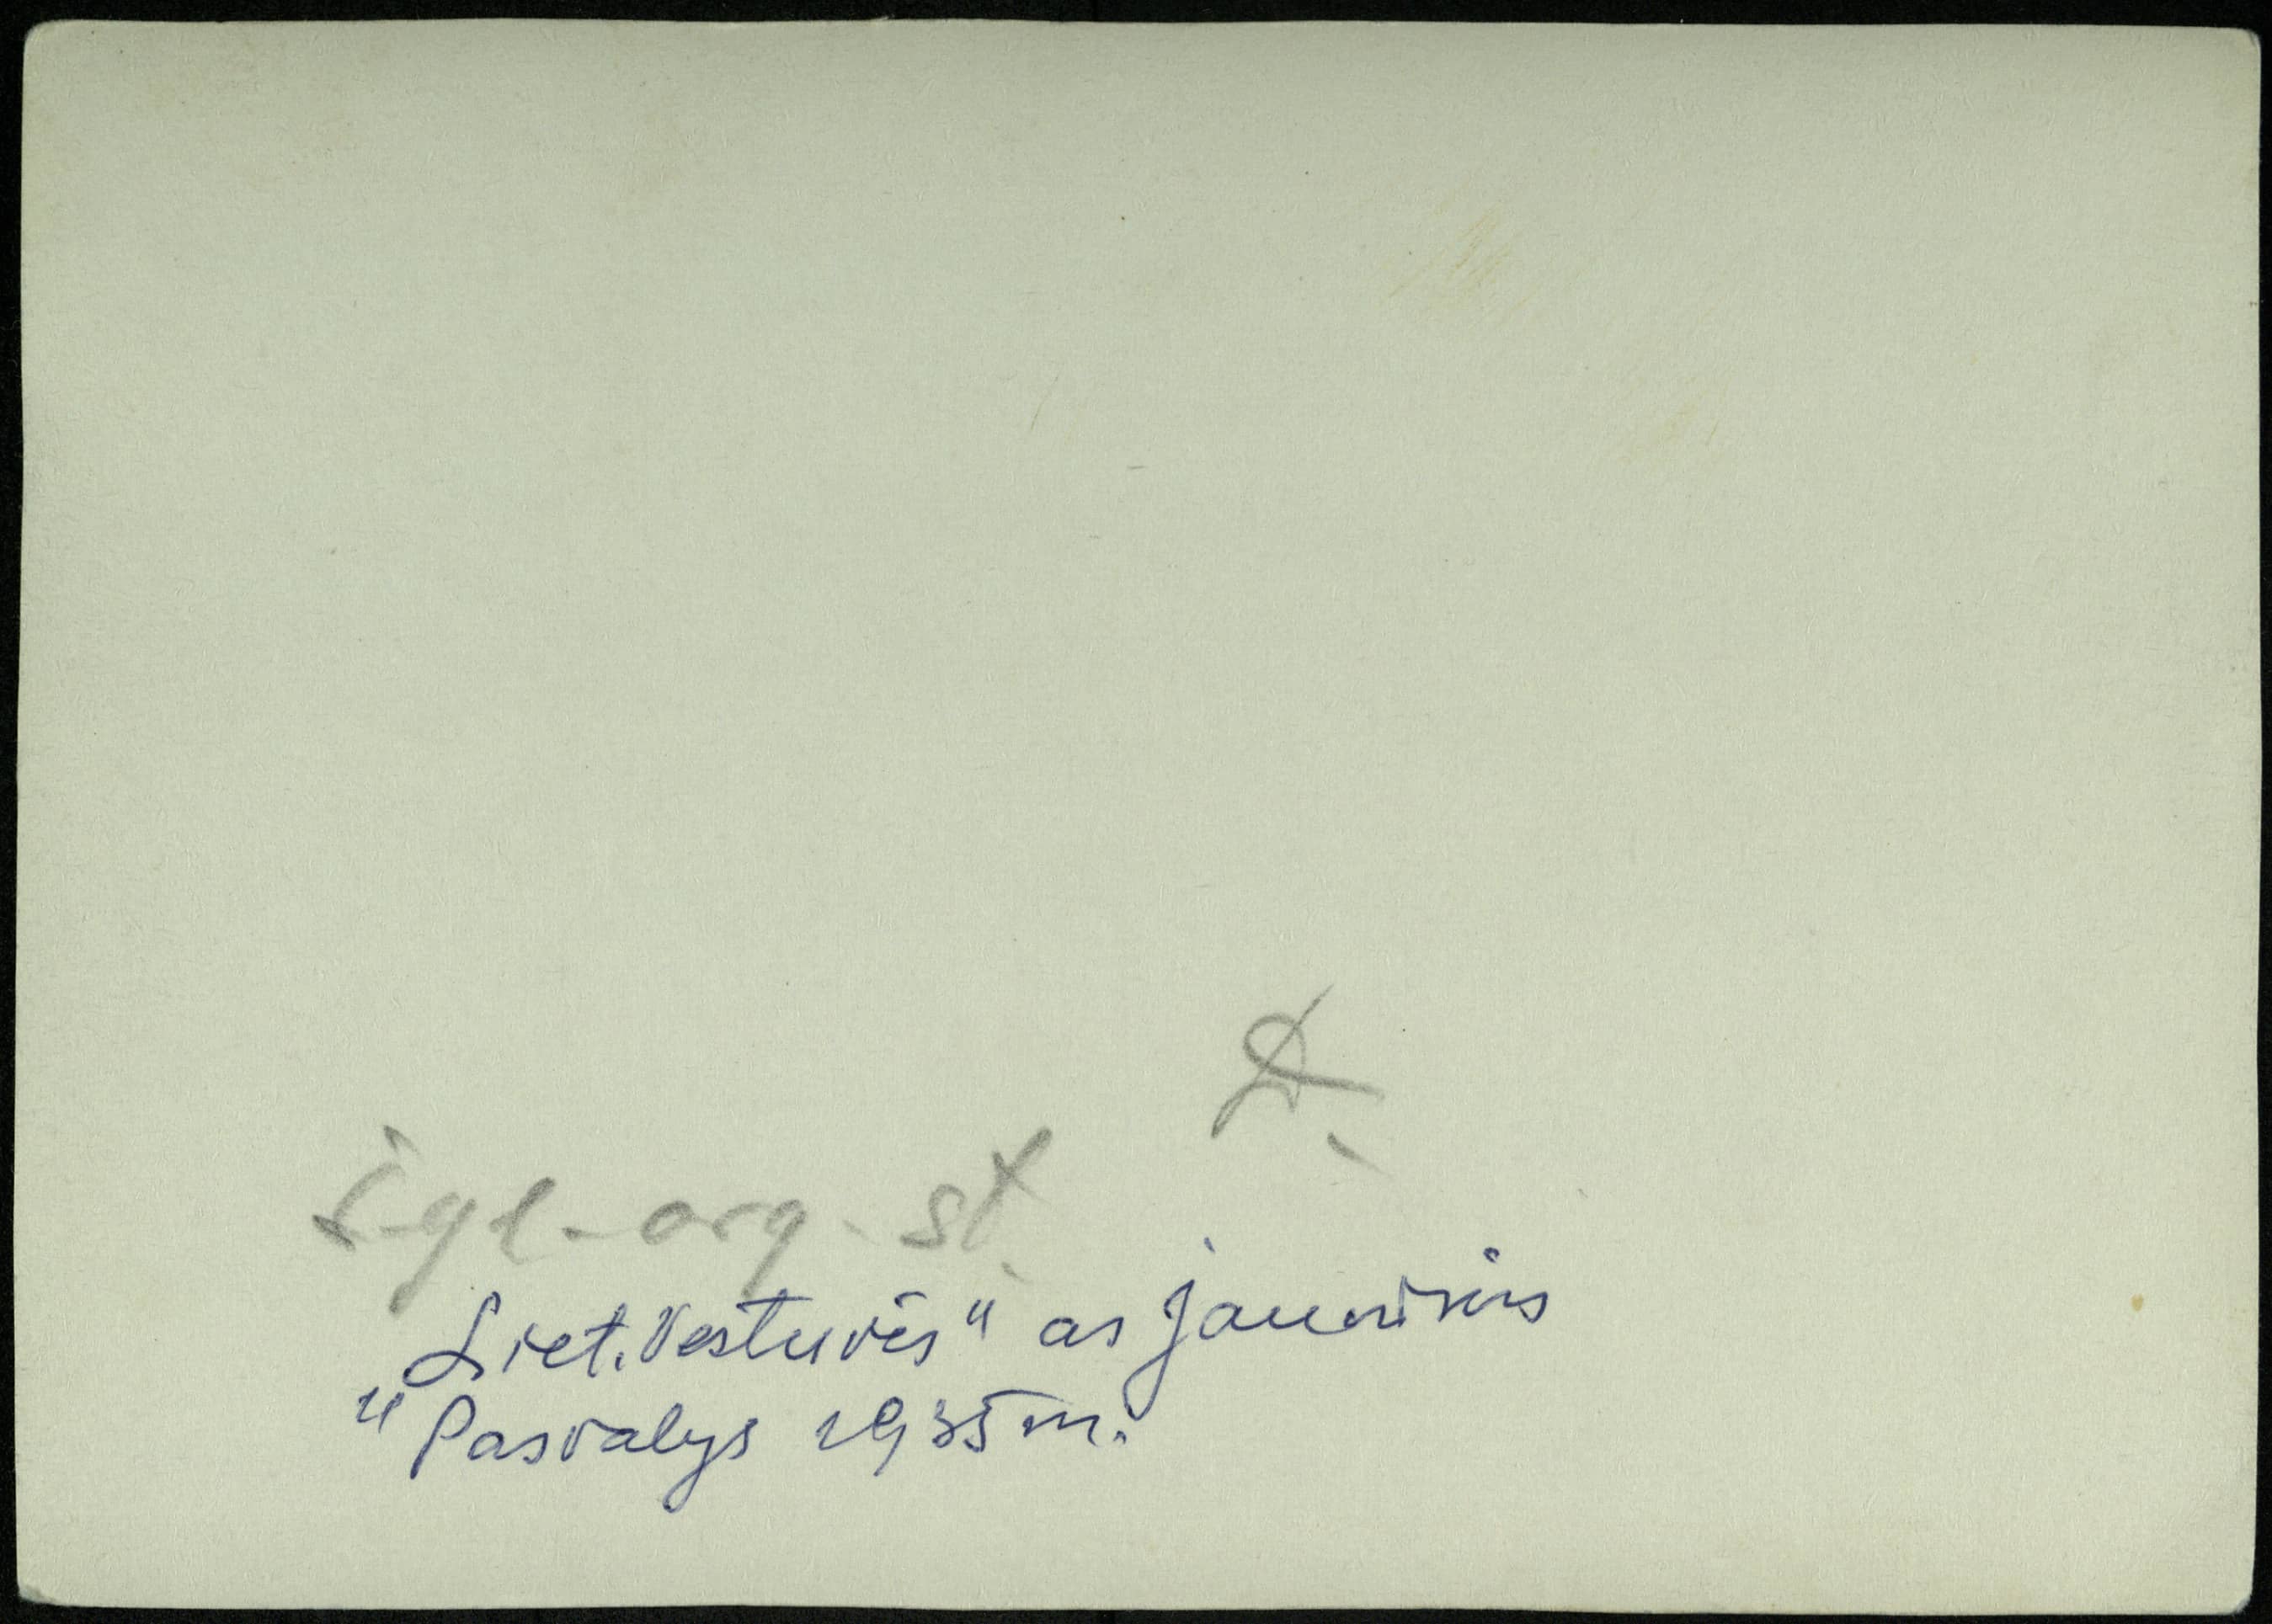 org. st.
„Liet. Vestuvės" as jaunikis
Pasvalys 1935 m.